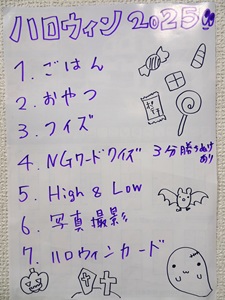 ハロウィン2025
1. ごはん
2. おやつ
3. クイズ
4. NGワードクイズ 3分勝ちぬけあり
5. High & Low
6. 写真撮影
7. ハロウィンカード